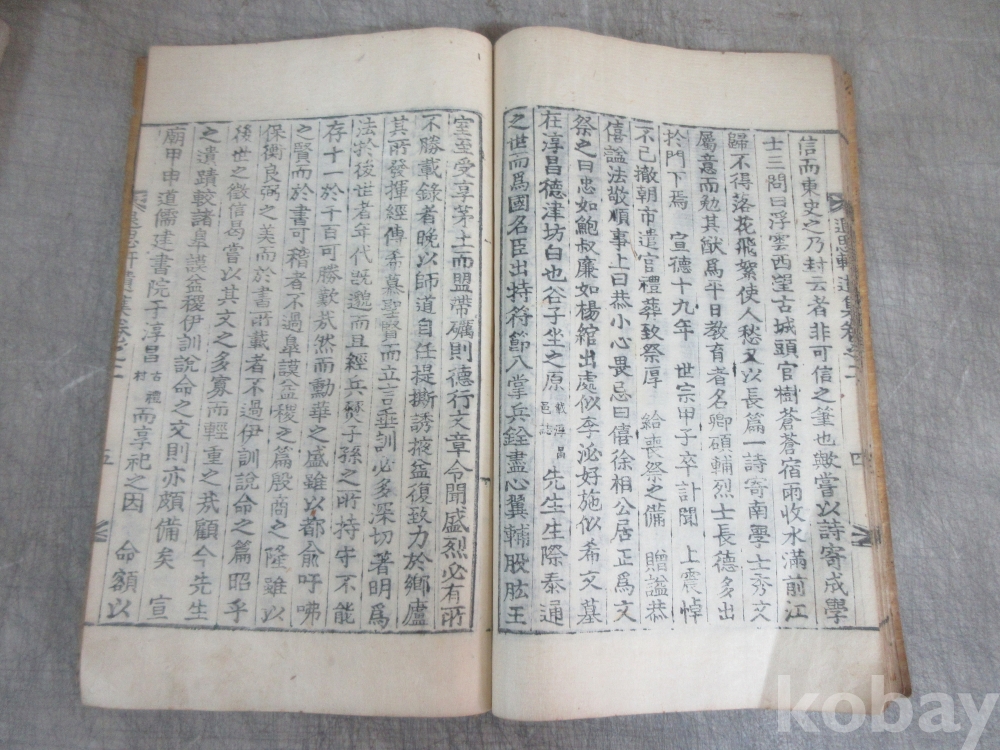 信而東史之乃封云者非可信之筆也歟嘗以詩寄成學
士三問曰浮雲西望古城頭官樹蒼蒼宿雨收水滿前江
歸不得落花飛絮使人愁又以長篇一詩寄南學士秀文
屬意而勉其猷爲平日敎育者名卿碩輔烈士長德多出
於門下焉 宣德十九年 世宗甲子卒訃聞 上震悼
不已撤朝市遣官禮葬致祭厚 給喪祭之備 贈謚恭
僖謚法敬順事上曰恭小心畏忌曰僖徐相公居正爲文
祭之曰忠如鮑叔廉如楊綰出處似李泌好施似希文墓
在淳昌德津坊白也谷子坐之原 先生生際泰通
之世而爲國名臣出持符節入掌兵銓盡心翼輔股肱王
室至受享茅土而盟帶礪則德行文章令聞盛烈必有所
不勝載錄者晚以師道自任提撕誘掖益復致力於鄉廬
其所發揮經傳希慕聖賢而立言垂訓必多深切著明爲
法於後世者年代旣邈而且經兵燹子孫之所持守不能
存十一於千百可勝歎哉然而勳華之盛雖以都俞吁咈
之賢而於書可稽者不過皐謨益稷之篇殷商之隆雖以
保衡良弼之美而於書所載者不過伊訓說命之篇昭乎
後世之徵信曷嘗以其文之多寡而輕重之哉顧今先生
之遺蹟較諸皐謨益稷伊訓說命之文則亦頗備矣 宣
廟甲申道儒建書院于淳昌古禮村而享祀之因 命額以
四
五
kobay